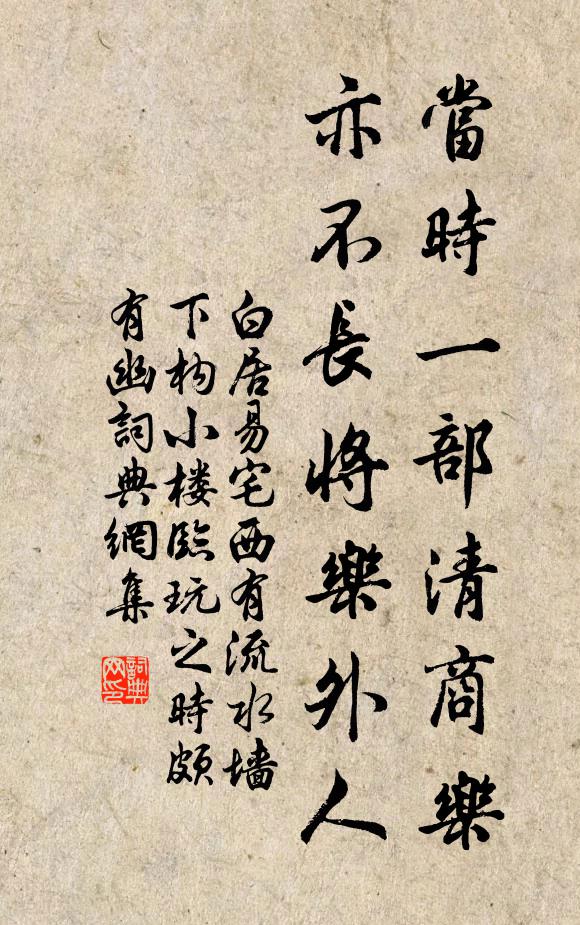 當時一部清商樂
亦不長將樂外人
白居易宅西有流水墙
下构小楼臨玩之時頗
有幽詞典網集
詞典网印